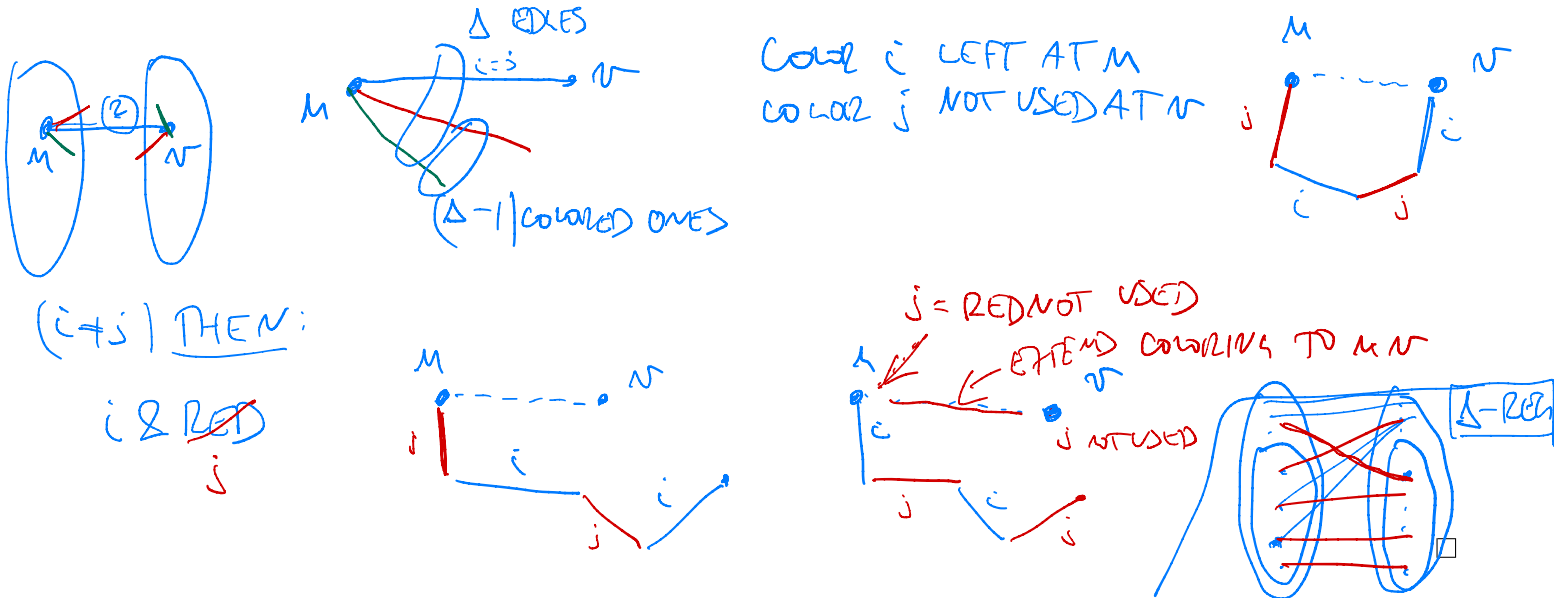 Δ EDGES
i=j
v
u
(Δ-1) COLORED ONES
?
u
v
COLOR i LEFT AT u
COLOR j NOT USED AT v
u
v
j
i
i
j
(i≠j) THEN:
i & RED
j
u
v
j
i
j
i
j = RED NOT USED
EXTEND COLORING TO uv
u
v
i
j NOT USED
j
i
j
Δ-REG